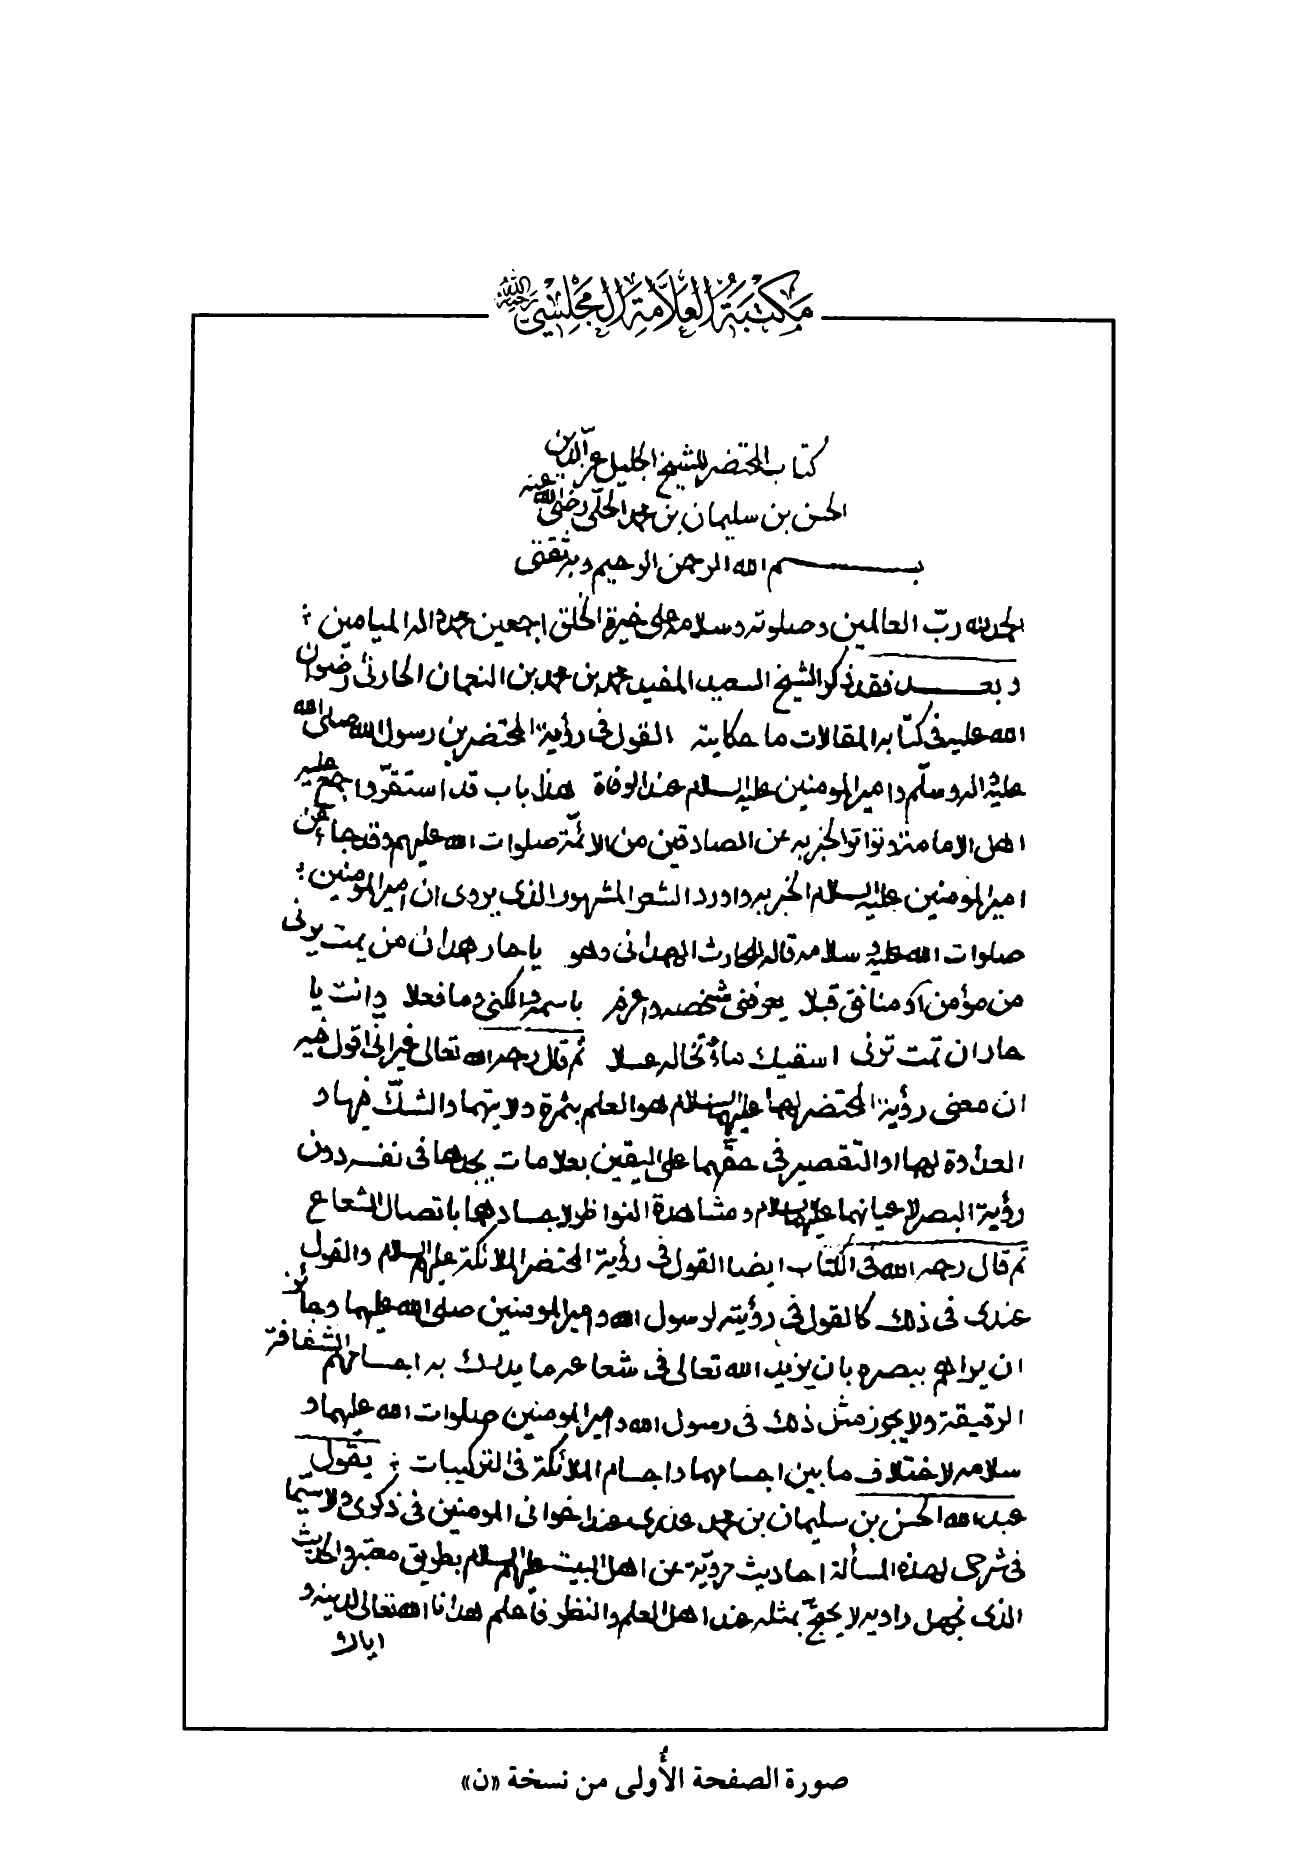 مكتبة العلامة المجلسي رحمه الله
كتاب المحتضر للشيخ الجليل عز الدين
الحسن بن سليمان بن محمد الحلّي رضي الله عنه
بسم الله الرحمن الرحيم وبه ثقتي
الحمد لله ربّ العالمين وصلوته وسلامه على خيرة الخلق اجمعين محمد واله الميامين
وبعد فقد ذكر الشيخ السعيد المفيد محمد بن محمد بن النعمان الحارثي رضوان
الله عليه في كتابه المقالات ما حكايته القول في رؤية المحتضرين رسول الله صلى الله
عليه واله وسلّم وامير المومنين عليه السلام عند الوفاة هذا باب قد استقرّ واجمع عليه
اهل الامامة وتواتر الخبر به عن الصادقين من الائمّة صلوات الله عليهم وقد جاء عن
امير المومنين عليه السلام الخبر به واورد الشعر المشهور الذي يروى ان امير المومنين
صلوات الله عليه وسلامه قاله للحارث الهمداني وهو يا حار همدان من يمت يرني
من مؤمن او منافق قبلا يعرفني شخصه واعرفه باسمه والكنى وما فعلا وانت يا
حار ان تمت ترني اسقيك ماءً تخاله عسلا ثم قال رحمه الله تعالى غير انى اقول فيه
ان معنى رؤية المحتضر لهما عليهما السلام هو العلم بثمرة ولايتهما والشكّ فيهما و
العداوة لهما او التقصير في حقّهما على اليقين بعلامات يجدها في نفسه دون
رؤية البصر لاعيانهما عليهما السلام ومشاهدة النواظر لاجسادهما باتصال الشعاع
ثم قال رحمه الله في الكتاب ايضا القول في رؤية المحتضر الملائكة عليهم السلام والقول
عندى في ذلك كالقول في رؤيته لرسول الله وامير المومنين صلى الله عليهما وجائز
ان يراهم ببصره بان يزيد الله تعالى في شعاعه ما يدرك به اجسامهم الشفافة
الرقيقة ولا يجوز مثل ذلك في رسول الله وامير المومنين صلوات الله عليهما و
سلامه لاختلاف ما بين اجسامهما واجسام الملائكة في التركيبات يقول
عبد الله الحسن بن سليمان بن محمد عذرى عند اخواني المومنين في ذكرى ولا سيّما
في شرحى لهذه المسألة احاديث مرويّة عن اهل البيت عليهم السلام بطريق معتبر والحديث
الذى نجهل راويه لا يحتجّ بمثله عند اهل العلم والنظر فاعلم هدانا الله تعالى لدينه و
اياك
صورة الصفحة الأُولى من نسخة «ن»